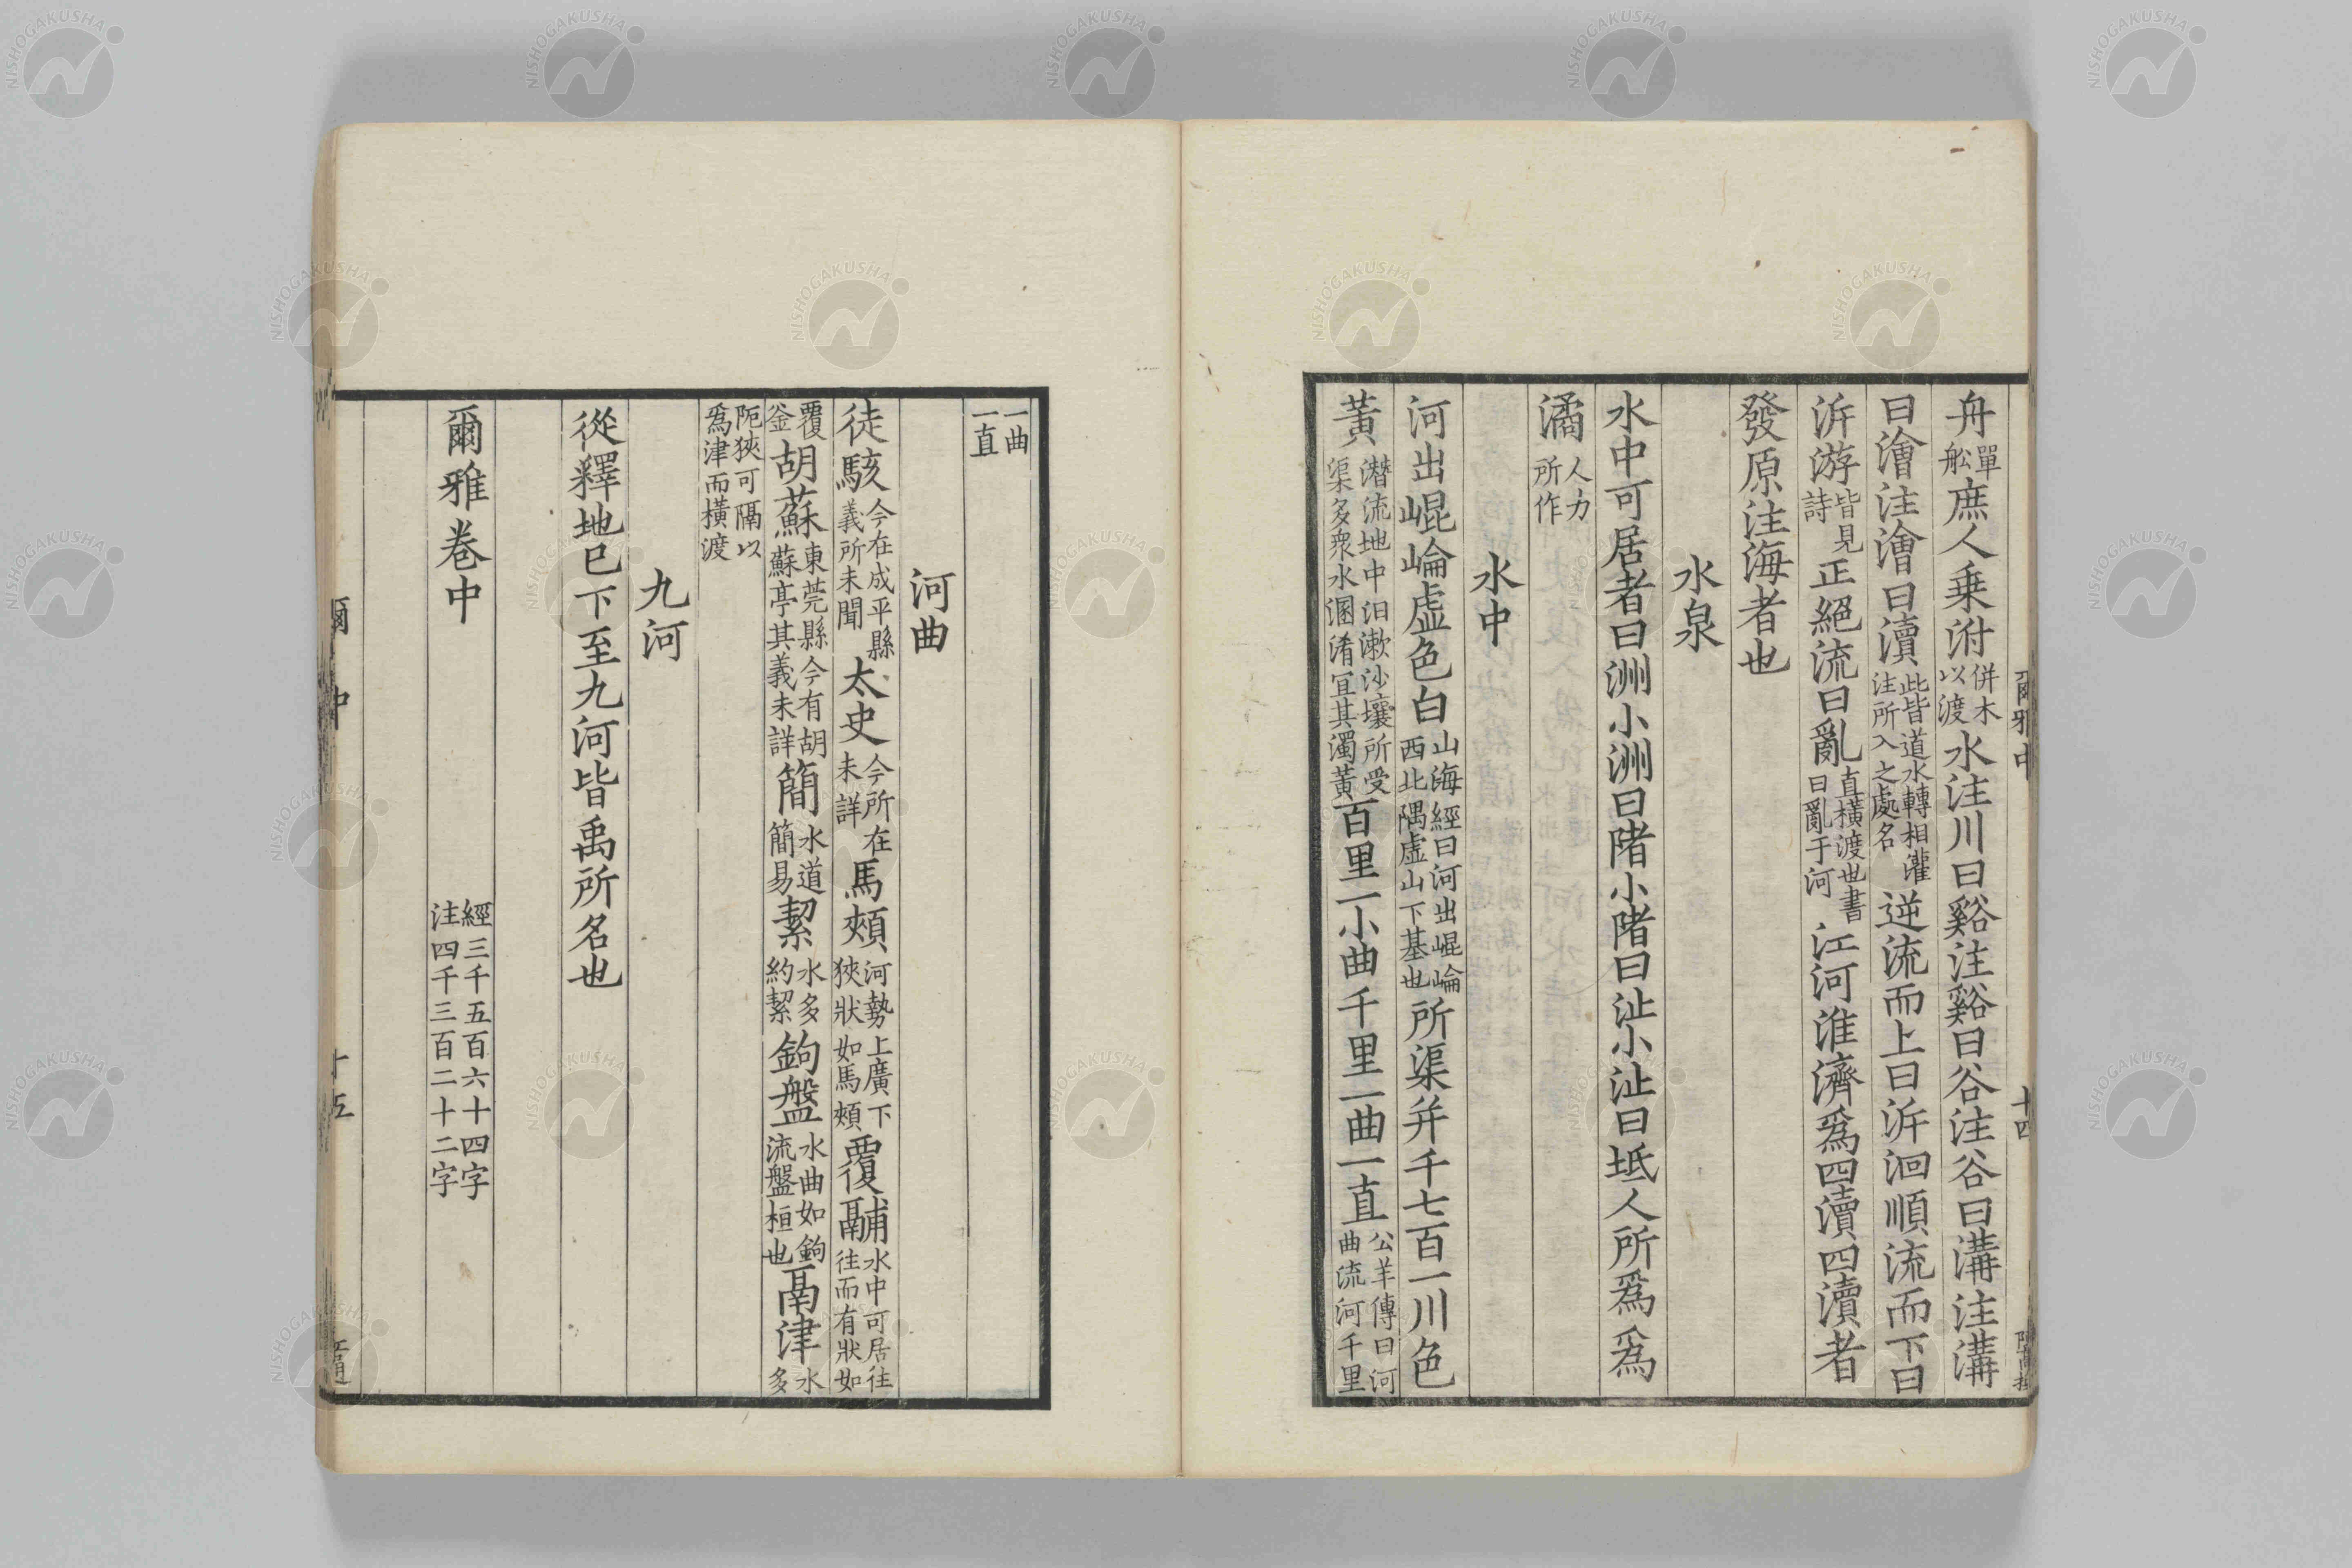 舟單舩庶人乗泭併木以渡水注川曰谿注谿曰谷注谷曰溝注溝
曰澮注澮曰瀆此皆道水轉相灌注所入之處名逆流而上曰泝洄順流而下曰
泝游皆見詩正絕流曰亂直橫渡也書曰亂于河江河淮濟爲四瀆四瀆者
發原注海者也
水泉
水中可居者曰洲小洲曰陼小陼曰沚小沚曰坻人所爲爲
潏人力所作
水中
河出崐崘虛色白山海經曰河出崐崘西北隅虛山下基也所渠并千七百一川色
黃潛流地中汨漱沙壤所受渠多衆水溷淆宜其濁黃百里一小曲千里一曲一直公羊傳曰河曲流河千里
爾雅中
十四
一曲一直
河曲
徒駭今在成平縣義所未聞太史今所在未詳馬頰河勢上廣下狹狀如馬頰覆鬴水中可居往往而有狀如
覆釜胡蘇東莞縣今有胡蘇亭其義未詳簡水道簡易絜水多約絜鉤盤水曲如鉤流盤桓也鬲津水多
阨狹可隔以爲津而橫渡
九河
從釋地已下至九河皆禹所名也
爾雅卷中
經三千五百六十四字
注四千三百二十二字
爾中
十五
NISHOGAKUSHA